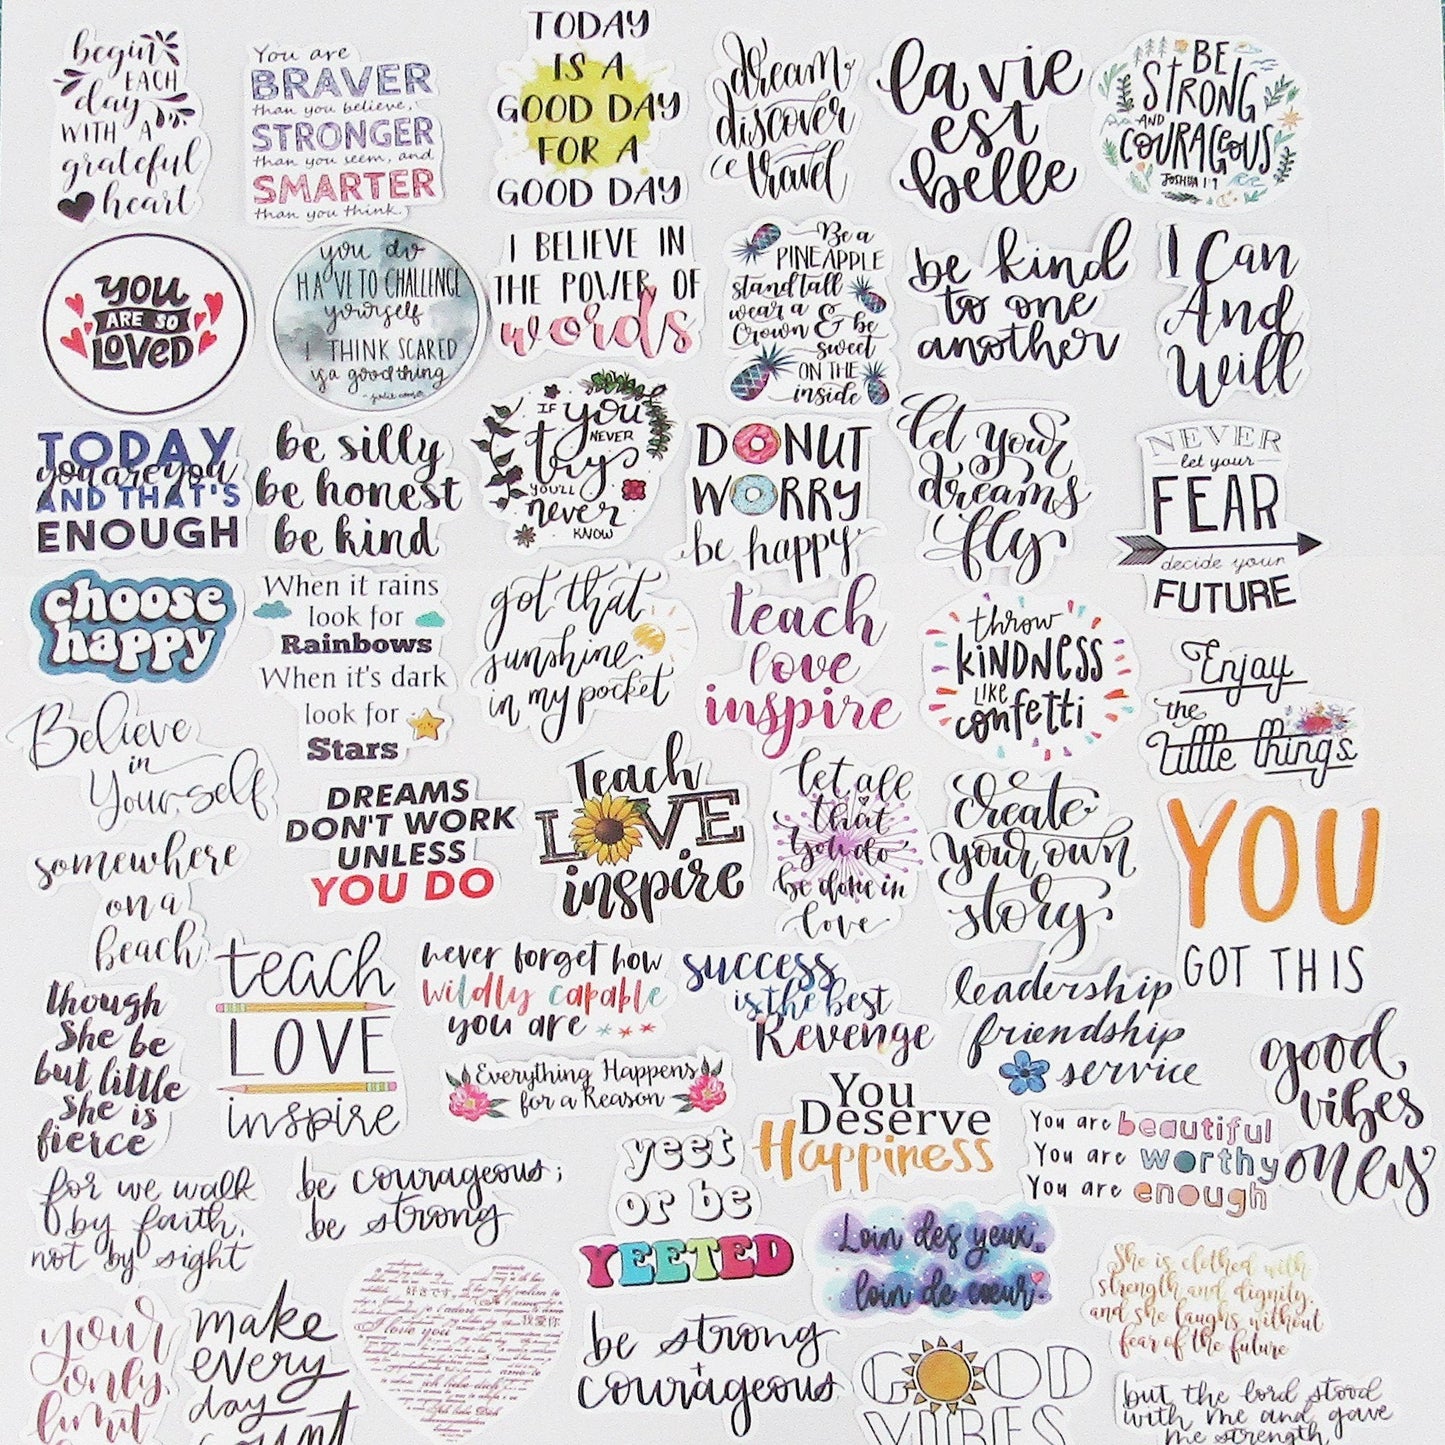 begin
EACH
day
WITH A
grateful
heart
You are
BRAVER
than you believe,
STRONGER
than you seem, and
SMARTER
than you think.
TODAY
IS A
GOOD DAY
FOR A
GOOD DAY
dream
discover
travel
la vie
est
belle
BE
STRONG
AND
COURAGEOUS
JOSHUA 1:9
YOU
ARE SO
LOVED
you do
HAVE TO CHALLENGE
yourself
I THINK SCARED
is a good thing
I BELIEVE IN
THE POWER OF
words
Be a
PINEAPPLE
stand tall
wear a
Crown & be
sweet
ON THE
inside
be kind
to one
another
I Can
And
Will
TODAY
you are you
AND THAT'S
ENOUGH
be silly
be honest
be kind
IF you
NEVER
try
YOU'LL
never
KNOW
DONUT
WORRY
be happy
let your
dreams
fly
NEVER
let your
FEAR
decide your
FUTURE
choose
happy
When it rains
look for
Rainbows
When it's dark
look for
Stars
got that
sunshine
in my pocket
teach
love
inspire
throw
KINDNESS
LIKE
confetti
Enjoy
the
little things
Believe
in
Yourself
DREAMS
DON'T WORK
UNLESS
YOU DO
Teach
LOVE
inspire
let all
that
you do
be done in
love
Create
your own
story
YOU
GOT THIS
somewhere
on a
beach
teach
LOVE
inspire
never forget how
wildly capable
you are
success
is the best
Revenge
leadership
friendship
service
good
vibes
only
though
She be
but little
She is
fierce
Everything Happens
for a Reason
You
Deserve
Happiness
You are beautiful
You are worthy
You are enough
for we walk
by faith,
not by sight
be courageous;
be strong
yeet
or be
YEETED
Loin des yeux,
loin de cœur.
She is clothed with
strength and dignity,
and she laughs without
fear of the future
your
only
limit
make
every
day
count
I love you
好きです
我愛你
be strong
+
courageous
GOOD
VIBES
but the lord stood
with me and gave
me strength,